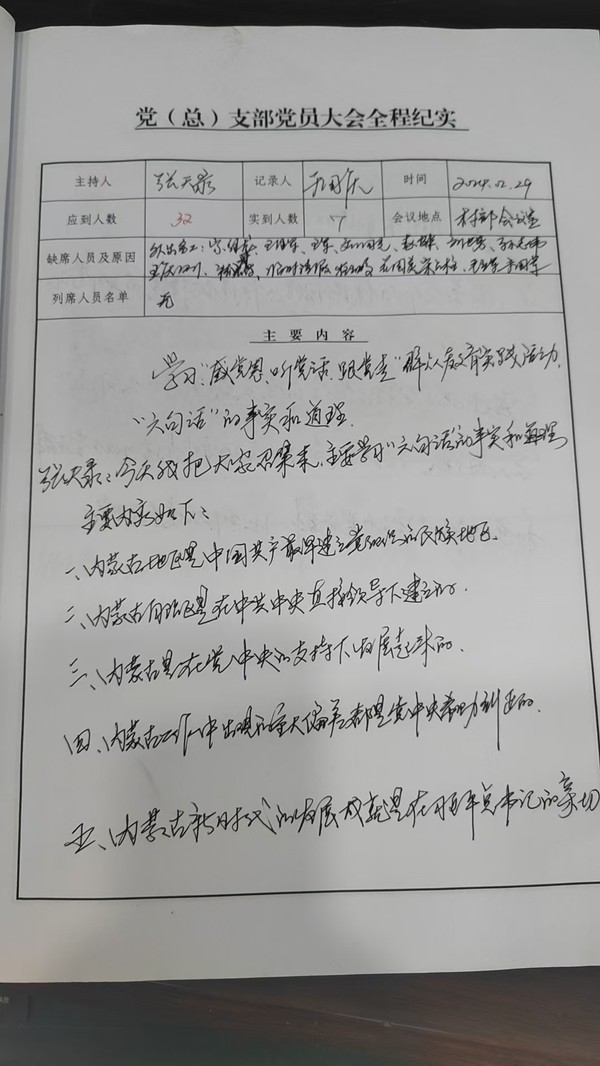 党（总）支部党员大会全程纪实
主持人 张天录 记录人 时间 2024.02.29
应到人数 32 实到人数 7 会议地点 村部会议室
缺席人员及原因 外出务工：
列席人员名单 无
主要内容
学习“感党恩、听党话、跟党走”群众教育实践活动
“六句话”的事实和道理.
张天录：今天我把大家召集来，主要学习“六句话”的事实和道理
主要内容如下：
一、内蒙古地区是中国共产最早建立党组织的民族地区.
二、内蒙古自治区是在中共中央直接领导下建立的.
三、内蒙古是在党中央的支持下发展起来的.
四、内蒙古工作中出现的重大偏差都是党中央帮助纠正的.
五、内蒙古新时代的发展成就是在习近平总书记的亲切